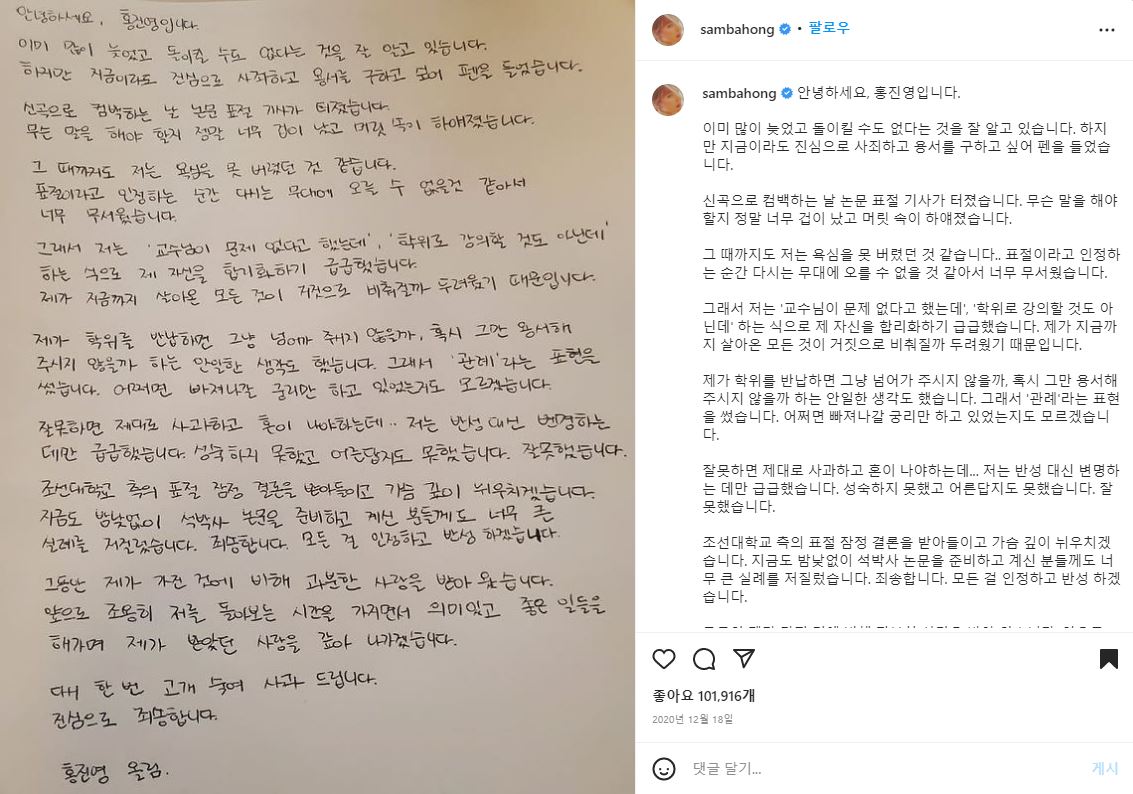 안녕하세요, 홍진영입니다.
이미 많이 늦었고 돌이킬 수도 없다는 것을 잘 알고 있습니다.
하지만 지금이라도 진심으로 사죄하고 용서를 구하고 싶어 펜을 들었습니다.
신곡으로 컴백하는 날 논문 표절 기사가 터졌습니다.
무슨 말을 해야 할지 정말 너무 겁이 났고 머릿 속이 하얘졌습니다.
그 때까지도 저는 욕심을 못 버렸던 것 같습니다.
표절이라고 인정하는 순간 다시는 무대에 오를 수 없을것 같아서
너무 무서웠습니다.
그래서 저는 '교수님이 문제 없다고 했는데', '학위로 강의할 것도 아닌데'
하는 식으로 제 자신을 합리화하기 급급했습니다.
제가 지금까지 살아온 모든 것이 거짓으로 비춰질까 두려웠기 때문입니다.
제가 학위를 반납하면 그냥 넘어가 주시지 않을까, 혹시 그만 용서해
주시지 않을까 하는 안일한 생각도 했습니다. 그래서 '관례'라는 표현을
썼습니다. 어쩌면 빠져나갈 궁리만 하고 있었는지도 모르겠습니다.
잘못하면 제대로 사과하고 혼이 나야하는데.. 저는 반성 대신 변명하는
데만 급급했습니다. 성숙하지 못했고 어른답지도 못했습니다. 잘못했습니다.
조선대학교 측의 표절 잠정 결론을 받아들이고 가슴 깊이 뉘우치겠습니다.
지금도 밤낮없이 석박사 논문을 준비하고 계신 분들께도 너무 큰
실례를 저질렀습니다. 죄송합니다. 모든 걸 인정하고 반성 하겠습니다.
그동안 제가 가진 것에 비해 과분한 사랑을 받아 왔습니다.
앞으로 조용히 저를 돌아보는 시간을 가지면서 의미있고 좋은 일들을
해가며 제가 받았던 사랑을 갚아 나가겠습니다.
다시 한 번 고개 숙여 사과 드립니다.
진심으로 죄송합니다.
홍진영 올림.
sambahong • 팔로우
sambahong 안녕하세요, 홍진영입니다.
이미 많이 늦었고 돌이킬 수도 없다는 것을 잘 알고 있습니다. 하지
만 지금이라도 진심으로 사죄하고 용서를 구하고 싶어 펜을 들었습
니다.
신곡으로 컴백하는 날 논문 표절 기사가 터졌습니다. 무슨 말을 해야
할지 정말 너무 겁이 났고 머릿 속이 하얘졌습니다.
그 때까지도 저는 욕심을 못 버렸던 것 같습니다.. 표절이라고 인정하
는 순간 다시는 무대에 오를 수 없을 것 같아서 너무 무서웠습니다.
그래서 저는 '교수님이 문제 없다고 했는데', '학위로 강의할 것도 아
닌데' 하는 식으로 제 자신을 합리화하기 급급했습니다. 제가 지금까
지 살아온 모든 것이 거짓으로 비춰질까 두려웠기 때문입니다.
제가 학위를 반납하면 그냥 넘어가 주시지 않을까, 혹시 그만 용서해
주시지 않을까 하는 안일한 생각도 했습니다. 그래서 '관례'라는 표현
을 썼습니다. 어쩌면 빠져나갈 궁리만 하고 있었는지도 모르겠습니
다.
잘못하면 제대로 사과하고 혼이 나야하는데... 저는 반성 대신 변명하
는 데만 급급했습니다. 성숙하지 못했고 어른답지도 못했습니다. 잘
못했습니다.
조선대학교 측의 표절 잠정 결론을 받아들이고 가슴 깊이 뉘우치겠
습니다. 지금도 밤낮없이 석박사 논문을 준비하고 계신 분들께도 너
무 큰 실례를 저질렀습니다. 죄송합니다. 모든 걸 인정하고 반성 하겠
습니다.
좋아요 101,916개
2020년 12월 18일
댓글 달기...
게시